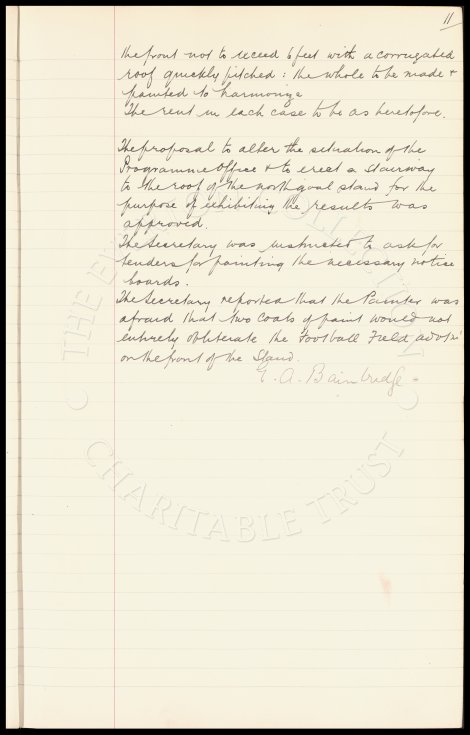 11
the front not to exceed 6 feet with a corrugated
roof quickly pitched: the whole to be made &
painted to harmonize
The rent in each case to be as heretofore.
The proposal to alter the situation of the
Programme Office & to erect a stairway
to the roof of the north goal stand for the
purpose of exhibiting the results was
approved.
The Secretary was instructed to ask for
tenders for painting the necessary notice
boards.
The Secretary reported that the Painter was
afraid that two coats of paint would not
entirely obliterate the Football Field advts
on the front of the Stand.
E. A. Bainbridge
THE EV
COLLECTION
CHARITABLE TRUST